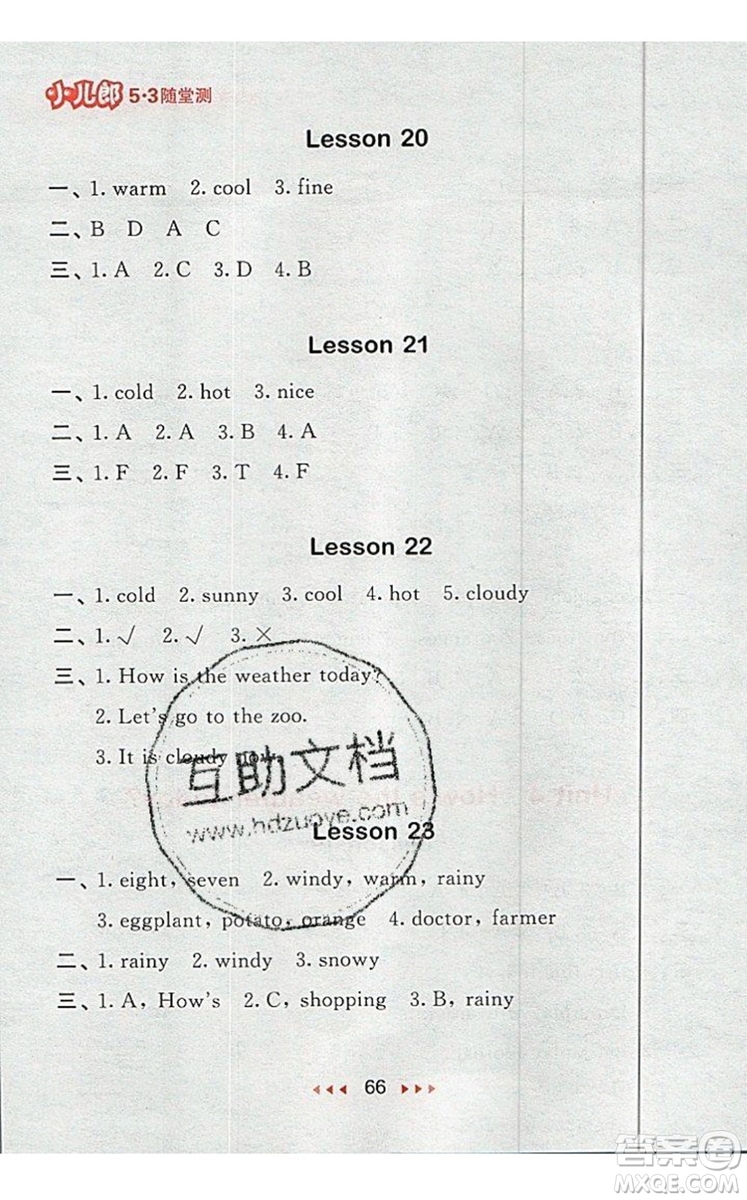 小儿郎 5·3随堂测
Lesson 20
一、1. warm 2. cool 3. fine
二、B D A C
三、1. A 2. C 3. D 4. B
Lesson 21
一、1. cold 2. hot 3. nice
二、1. A 2. A 3. B 4. A
三、1. F 2. F 3. T 4. F
Lesson 22
一、1. cold 2. sunny 3. cool 4. hot 5. cloudy
二、1. √ 2. √ 3. ×
三、1. How is the weather today?
2. Let's go to the zoo.
3. It is cloudy now.
互助文档
www.hdzuoye.com
Lesson 23
一、1. eight, seven 2. windy, warm, rainy
3. eggplant, potato, orange 4. doctor, farmer
二、1. rainy 2. windy 3. snowy
三、1. A, How's 2. C, shopping 3. B, rainy
66
答案圈
MXQE.COM